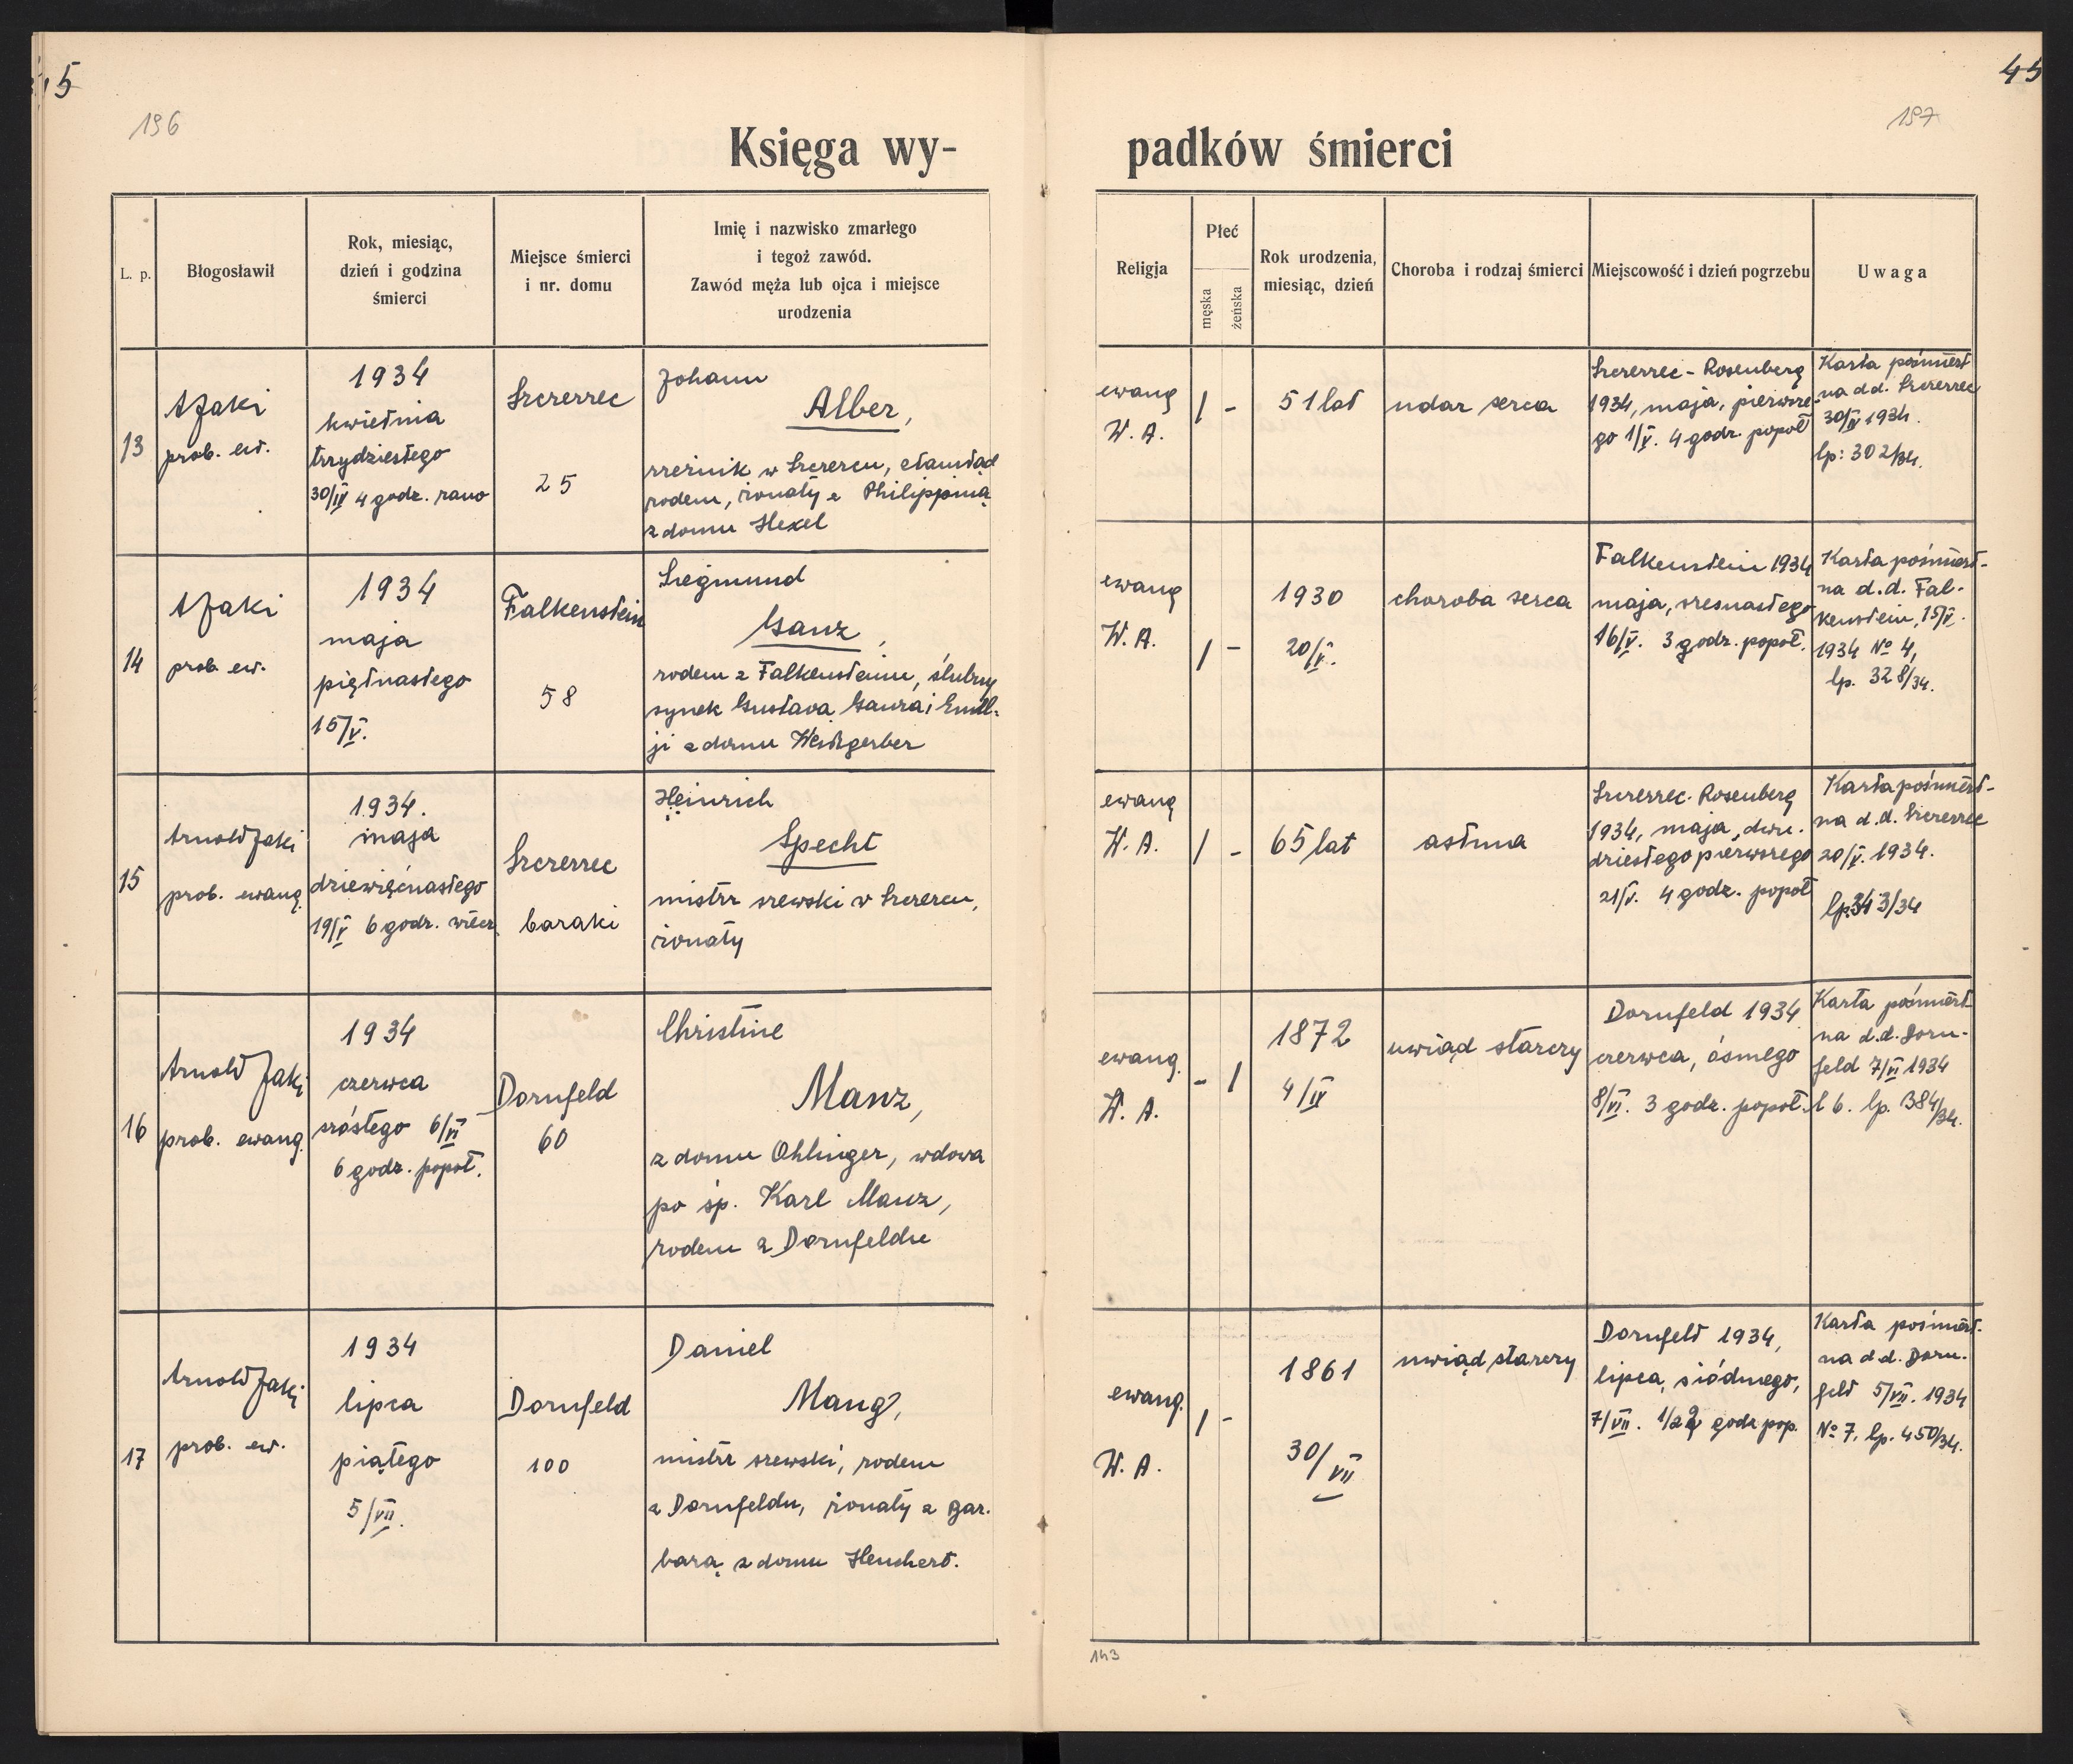 45
196
197
Księga wy-
padków śmierci
L. p.
Błogosławił
Rok, miesiąc,
dzień i godzina
śmierci
Miejsce śmierci
i nr. domu
Imię i nazwisko zmarłego
i tegoż zawód.
Zawód męża lub ojca i miejsce
urodzenia
Religja
Płeć
męska
żeńska
Rok urodzenia,
miesiąc, dzień
Choroba i rodzaj śmierci
Miejscowość i dzień pogrzebu
Uwaga
13
A Jaki
prob. ew.
1934
kwietnia
trzydziestego
30/IV 4 godz. rano
Szczerzec
25
Johann
Alber,
rzeźnik w Szczercu, stamtąd
rodem, żonaty z Philippiną
z domu Hexel
ewang
W. A.
/ -
51 lat
udar serca
Szczerzec - Rosenberg
1934, maja, pierwsze-
go 1/V. 4 godz. popoł
Karta pośmiert
na d.d. Szczerzec
30/IV 1934.
lp: 302/34.
14
A Jaki
prob. ew.
1934
maja
piętnastego
15/V.
Falkenstein
58
Siegmund
Ganz,
rodem z Falkensteinu, ślubny
synek Gustava Ganza i Emil-
ji z domu Weidgerber
ewang
W. A.
/ -
1930
20/V.
choroba serca
Falkenstein 1934
maja, szesnastego
16/V. 3 godz. popoł.
Karta pośmiert-
na d.d. Fal-
kenstein, 15/V.
1934 No 4,
lp. 328/34.
15
Arnold Jaki
prob. ewang.
1934.
maja
dziewiętnastego
19/V 6 godz. wiecz.
Szczerzec
baraki
Heinrich
Specht
mistrz szewski w Szczercu,
żonaty
ewang
W. A.
/ -
65 lat
astma
Szczerzec - Rosenberg
1934, maja, dwu-
dziestego pierwszego
21/V. 4 godz. popoł
Karta pośmiert-
na d.d. Szczerzec
20/V. 1934.
lp. 343/34
16
Arnold Jaki
prob. ewang.
1934
czerwca
szóstego 6/VI
6 godz. popoł.
Dornfeld
60
Christine
Manz,
z domu Ohlinger, wdowa
po śp. Karl Manz,
rodem z Dornfeldu
ewang.
W. A.
- /
1872
4/IV
uwiąd starczy
Dornfeld 1934
czerwca, ósmego
8/VI. 3 godz. popoł.
Karta pośmiert
na d.d. Dorn-
feld 7/VI 1934
l 6. lp. 384/34.
17
Arnold Jaki
prob. ew.
1934
lipca
piątego
5/VII.
Dornfeld
100
Daniel
Mang,
mistrz szewski, rodem
z Dornfeldu, żonaty z Bar-
barą z domu Henchert.
ewang.
W. A.
/ -
1861
30/VII
uwiąd starczy
Dornfeld 1934,
lipca, siódmego,
7/VII. godz pop.
Karta pośmiert.
na d.d. Dorn-
feld 5/VII. 1934
No 7. lp. 450/34.
143